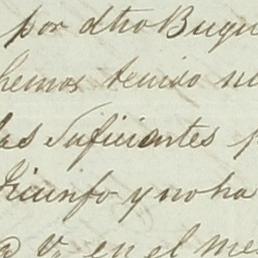 por dho Buqu
hemos tenido n
las Suficiantes p
Triunfo y no ha
V. en el me